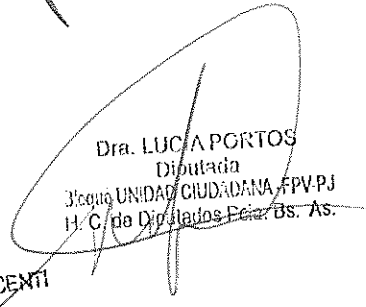 Dra. LUCIA PORTOS
Diputada
Bloque UNIDAD CIUDADANA-FPV-PJ
H. C. de Diputados Pcia. Bs. As.
CENTI